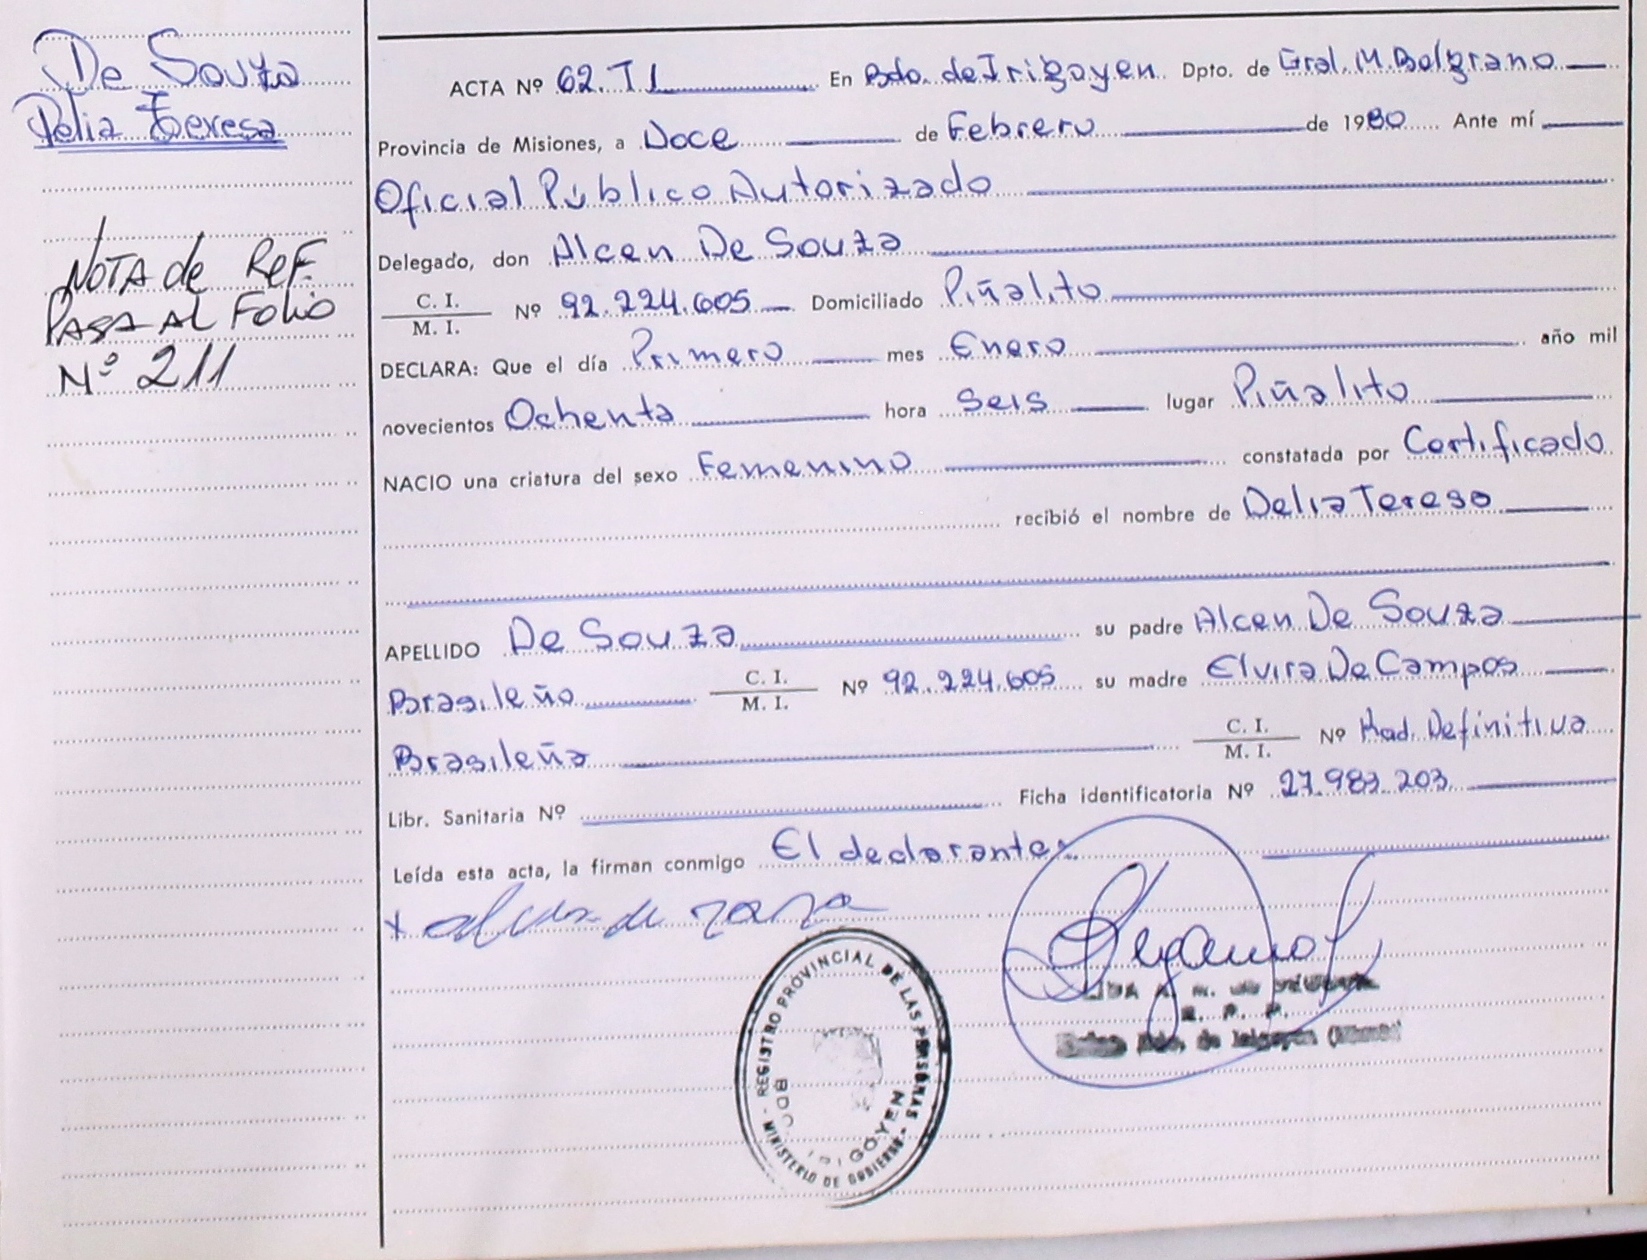 De Souza
Delia Teresa
NOTA de REF.
PASA AL FOLIO
Nº 211
ACTA Nº 62. T I En Bdo. de Irigoyen. Dpto. de Gral. M. Belgrano
Provincia de Misiones, a Doce de Febrero de 1980 Ante mí
Oficial Público Autorizado
Delegado, don Alceu De Souza
C. I.
M. I.
Nº 92.224.605 Domiciliado Piñalito
DECLARA: Que el día Primero mes Enero año mil
novecientos Ochenta hora Seis lugar Piñalito
NACIO una criatura del sexo Femenino constatada por Certificado
recibió el nombre de Delia Teresa
APELLIDO De Souza su padre Alceu De Souza
Brasileño C. I.
M. I.
Nº 92.224.605 su madre Elvira De Campos
Brasileña C. I.
M. I.
Nº Rad. Definitiva
Libr. Sanitaria Nº Ficha identificatoria Nº 27.983.203
Leída esta acta, la firman conmigo El declarante
REGISTRO PROVINCIAL DE LAS PERSONAS - MINISTERIO DE GOBIERNO -
BDO. IRIGOYEN